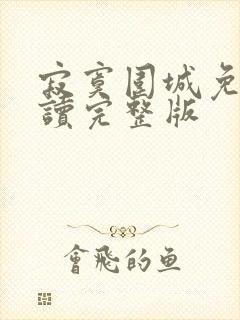 寂寞圍城免
讀完整版
會飛的鱼